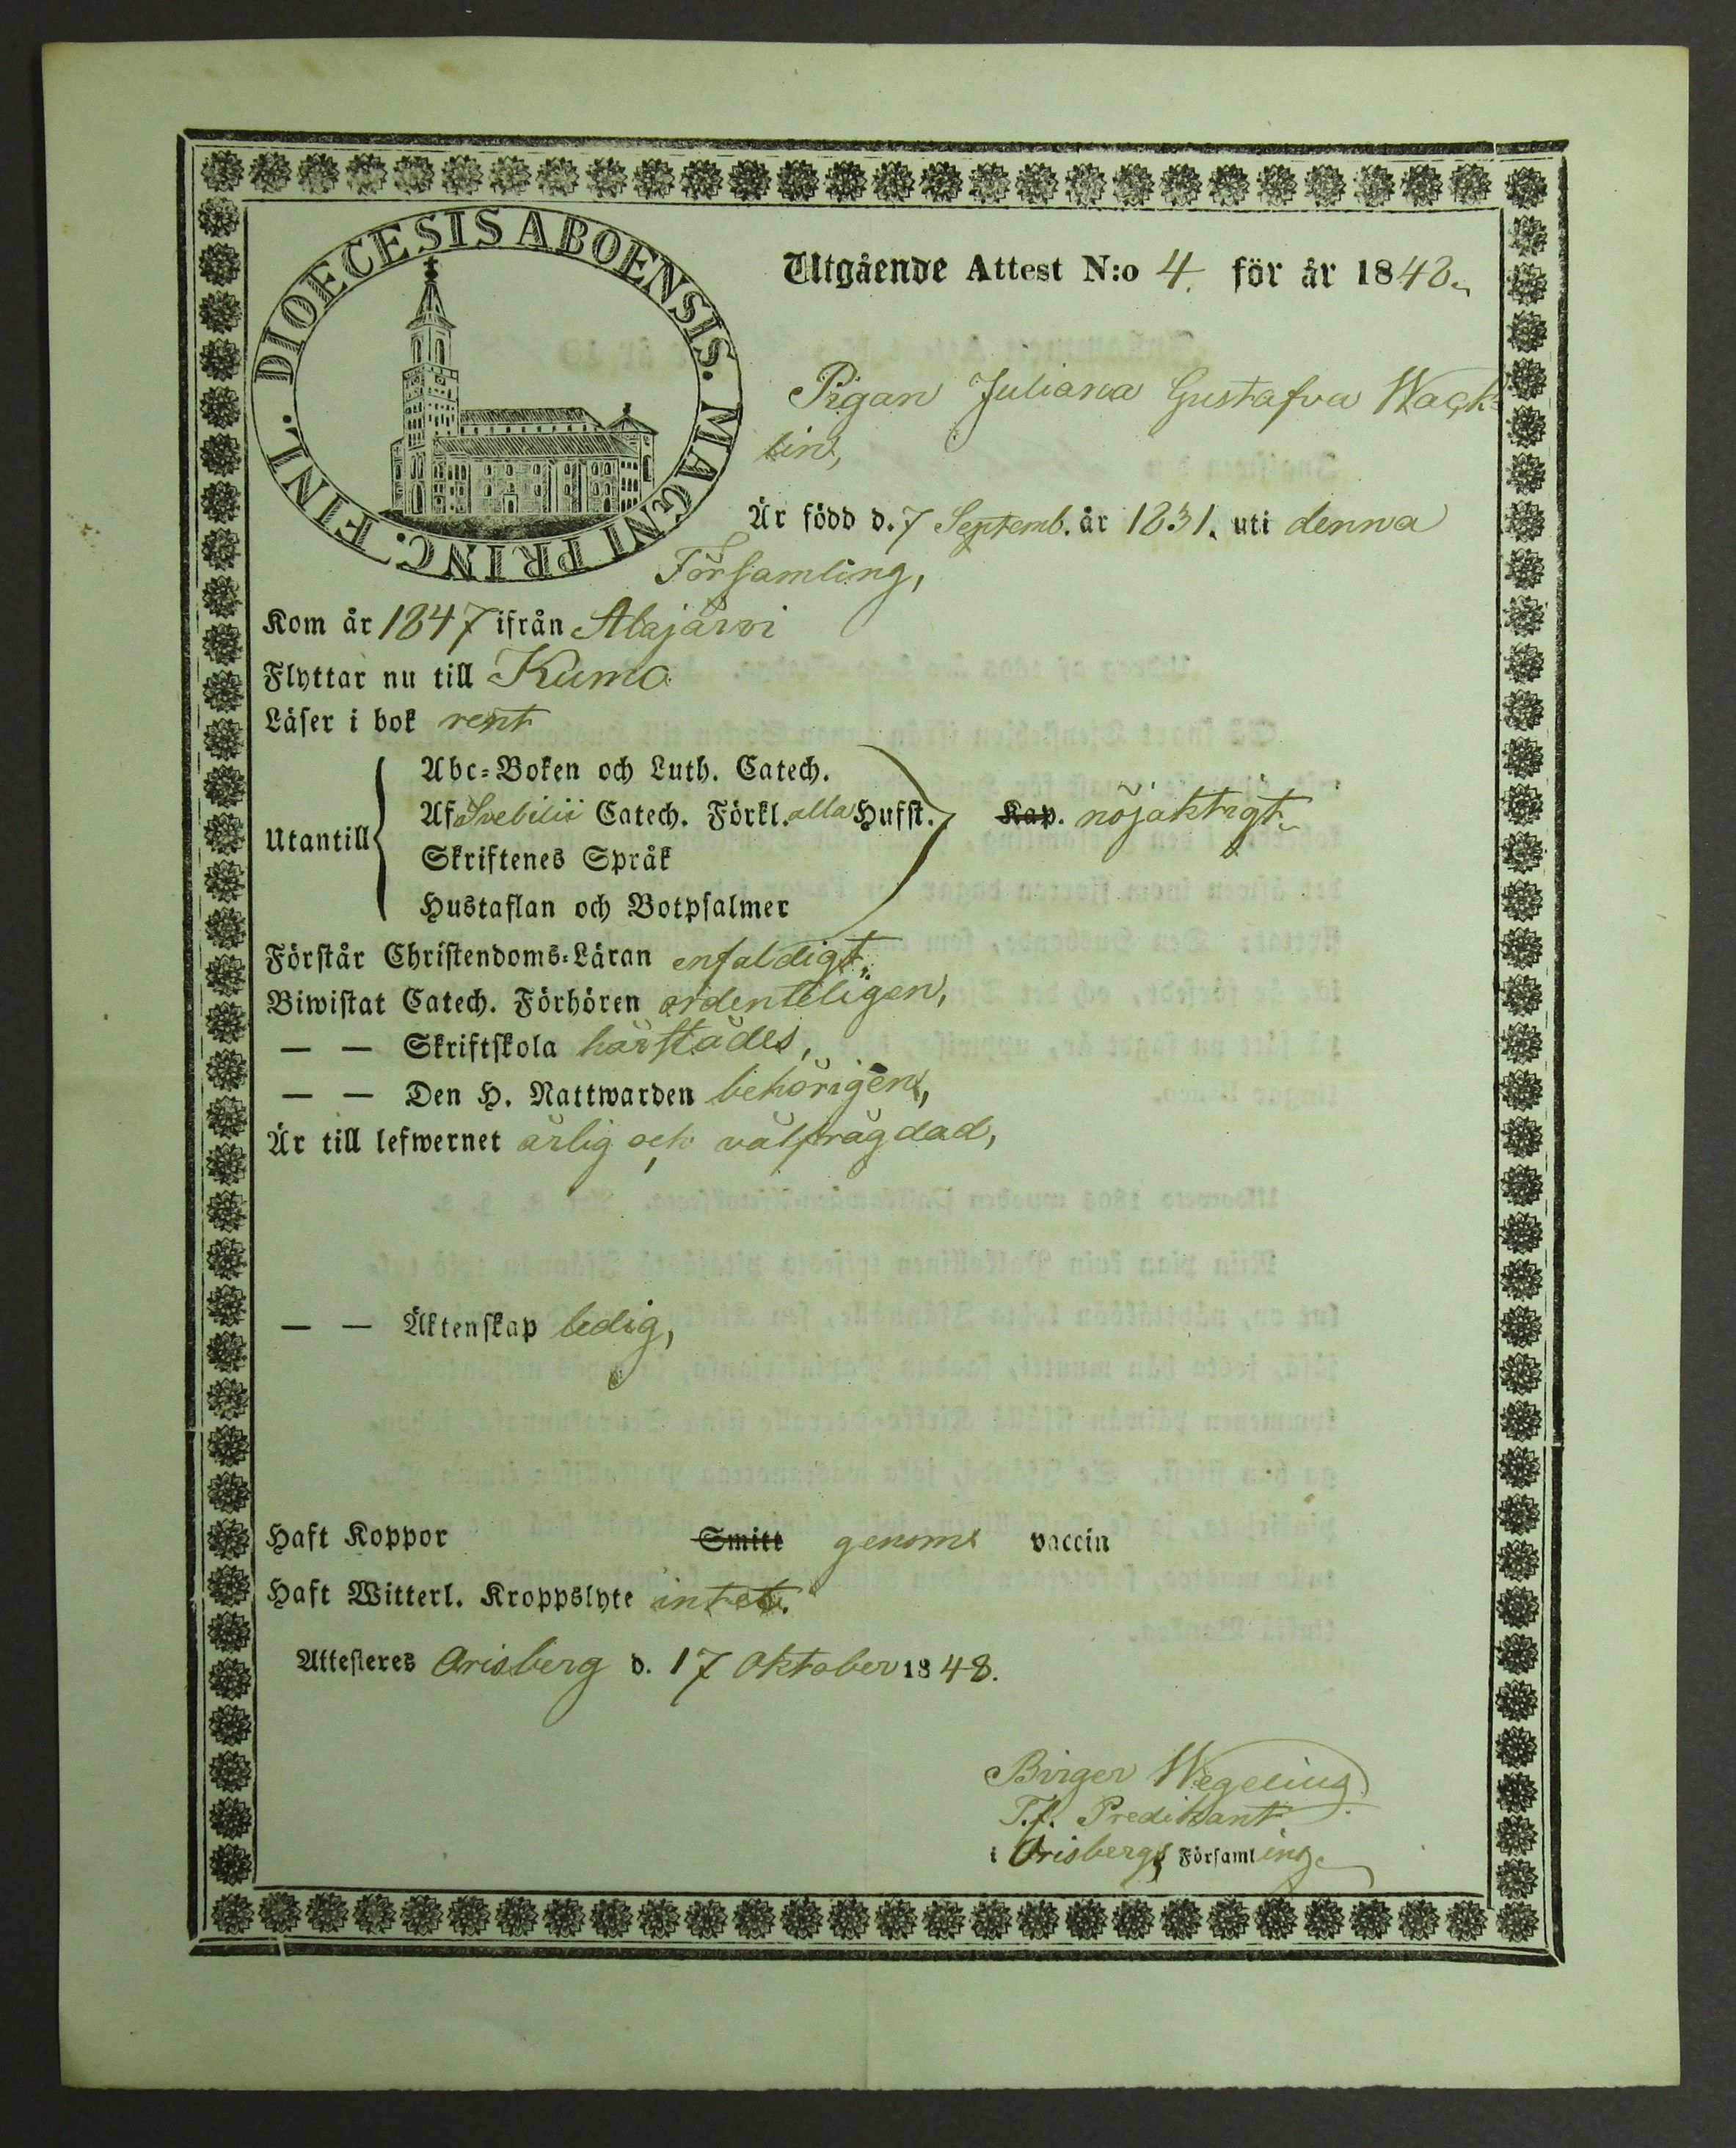 DIOECESIS ABOENSIS. MAGNI PRINC. FINL.
Utgående Attest N:o 4. för år 1848.
Pigan Juliana Gustafva Wack-
lin,
Är född d. 7 Septemb. år 1831. uti denna
Församling,
Kom år 1847 ifrån Alajärvi
Flyttar nu till Kumo
Läser i bok rent
Utantill
Abc-Boken och Luth. Catech.
Af Svebilii Catech. Förkl. alla Hufst. Kap. nöjaktigt.
Skriftenes Språk
Hustaflan och Botpsalmer
Förstår Christendoms-Läran enfaldigt.
Biwistat Catech. Förhören ordenteligen,
— — Skriftskola härstädes,
— — Den H. Nattwarden behörigen,
Är till lefwernet ärlig och välfrägdad,
— — Äktenskap ledig,
Haft Koppor Smitt genom vaccin
Haft Witterl. Kroppslyte intet.
Attesteres Orisberg d. 17 Oktober 1848.
Birger Wegelius
T.f. Predikant
i Orisbergs Församling.